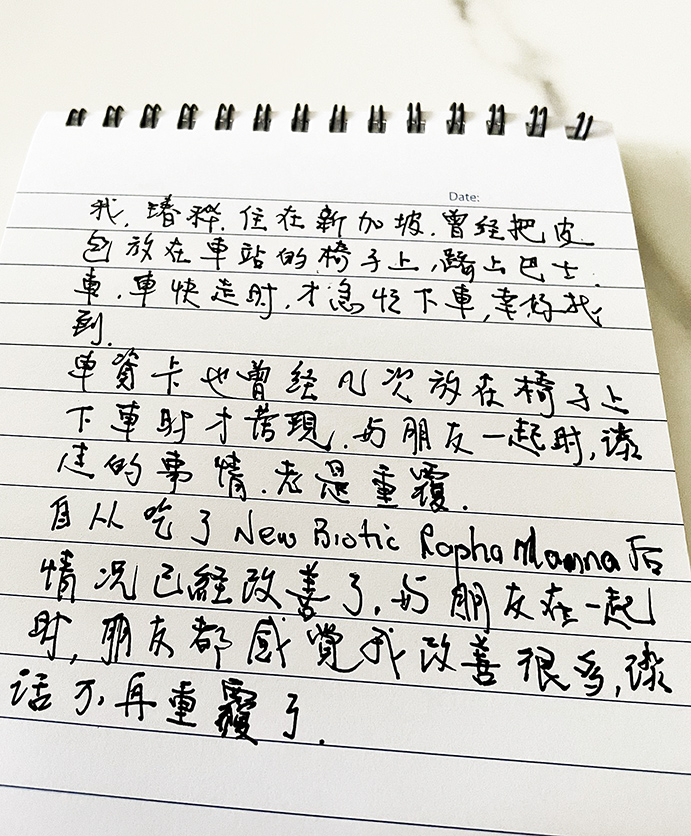 Date:
我, 瑃稡, 住在新加坡, 曾经把皮
包放在車站的椅子上, 踏上巴士
車, 車快走时, 才急忙下車, 幸好找
到.
車資卡也曾经几次放在椅子上
下車时才發現, 与朋友一起时, 談
过的事情, 老是重覆.
自从吃了 New Biotic Rapha Manna 后
情况已経改善了, 与朋友在一起
时, 朋友都感覺我改善很多, 談
话不再重覆了.